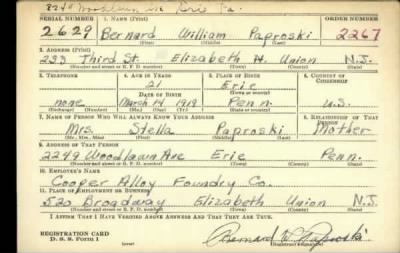 2249 Woodlawn Ave Erie Pa.
SERIAL NUMBER 1. NAME (Print) ORDER NUMBER
2629 Bernard William Paproski 2267
(First) (Middle) (Last)
2. ADDRESS (Print)
233 Third St. Elizabeth N. Union N.J.
(Number and street or R. F. D. number) (Town) (County) (State)
3. TELEPHONE 4. AGE IN YEARS 5. PLACE OF BIRTH 6. COUNTRY OF CITIZENSHIP
21 Erie
DATE OF BIRTH (Town or county)
none March 14 1919 Penn. U.S.
(Exchange) (Number) (Mo.) (Day) (Yr.) (State or country)
7. NAME OF PERSON WHO WILL ALWAYS KNOW YOUR ADDRESS 8. RELATIONSHIP OF THAT PERSON
Mrs. Stella Paproski Mother
(Mr., Mrs., Miss) (First) (Middle) (Last)
9. ADDRESS OF THAT PERSON
2249 Woodlawn Ave Erie Penn.
(Number and street or R. F. D. number) (Town) (County) (State)
10. EMPLOYER'S NAME
Cooper Alloy Foundry Co.
11. PLACE OF EMPLOYMENT OR BUSINESS
520 Broadway Elizabeth Union N.J.
(Number and street or R. F. D. number) (Town) (County) (State)
I AFFIRM THAT I HAVE VERIFIED ABOVE ANSWERS AND THAT THEY ARE TRUE.
REGISTRATION CARD
D. S. S. Form 1 (over) Bernard W. Paproski
(Registrant's signature)